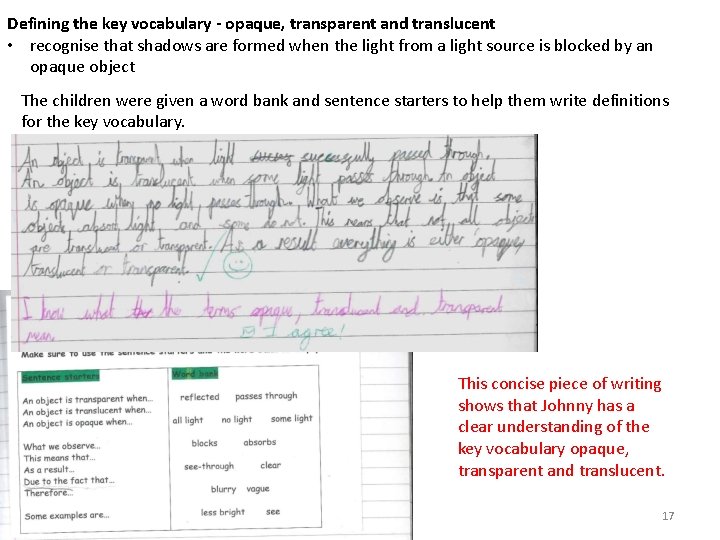 Defining the key vocabulary - opaque, transparent and translucent
• recognise that shadows are formed when the light from a light source is blocked by an
opaque object
The children were given a word bank and sentence starters to help them write definitions
for the key vocabulary.
An object is transparent when light successfully passed through.
An object is translucent when some light passes through. An object
is opaque when no light passes through. What we observe is that some
objects absorb light and some do not. This means that not all objects
are translucent or transparent. As a result everything is either opaque,
translucent or transparent.
I know what the terms opaque, translucent and transparent
mean.
I agree!
Make sure to use the sentence starters and the word bank
Sentence starters
An object is transparent when...
An object is translucent when...
An object is opaque when...
What we observe...
This means that...
As a result...
Due to the fact that...
Therefore...
Some examples are...
Word bank
reflected passes through
all light no light some light
blocks absorbs
see-through clear
blurry vague
less bright see
This concise piece of writing
shows that Johnny has a
clear understanding of the
key vocabulary opaque,
transparent and translucent.
17